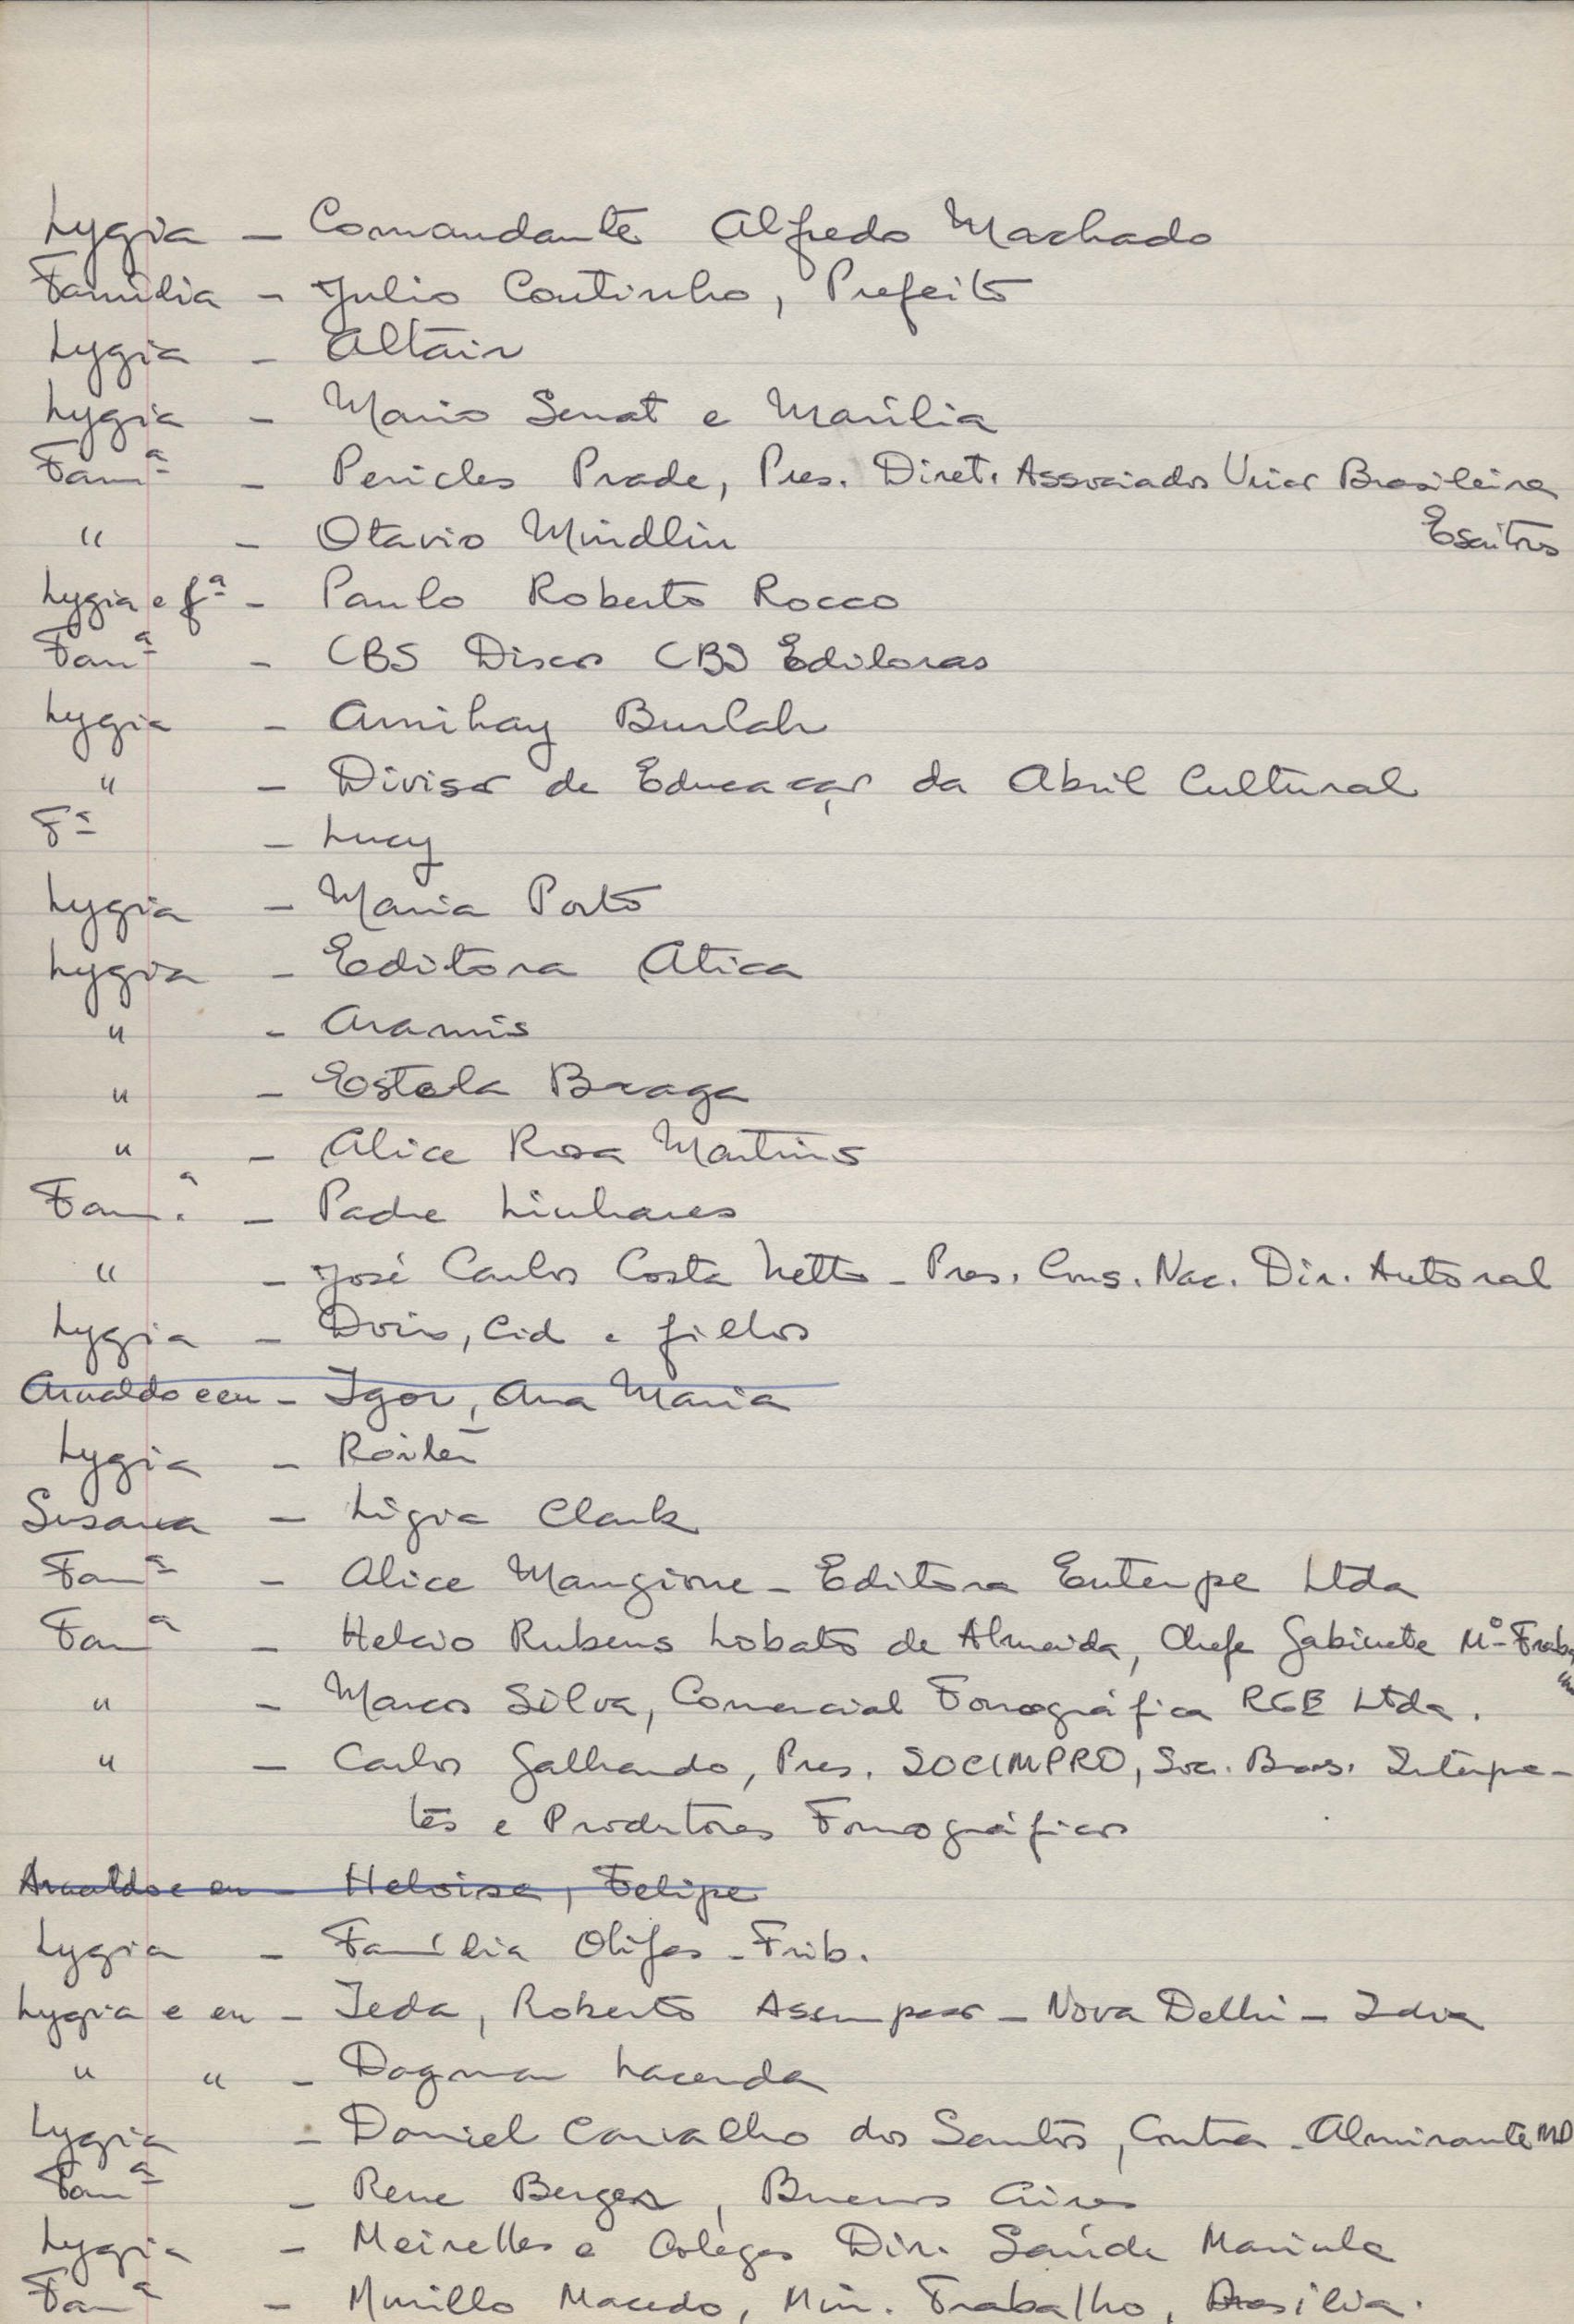 Lygia - Comandante Alfredo Machado
Família - Julio Coutinho, Prefeito
Lygia - Altair
Lygia - Mario Senat e Marília
Famª - Pericles Prade, Pres. Diret. Associados União Brasileira
" - Otavio Mindlin Escritores
Lygia e fª - Paulo Roberto Rocco
Famª - CBS Discos CBS Editoras
Lygia - Amihay Burlah
" - Divisão de Educação da Abril Cultural
Fª - Lucy
Lygia - Maria Porto
Lygia - Editora Atica
" - Aramis
" - Estela Braga
" - Alice Rosa Martins
Fam.ª - Padre Linhares
" - José Carlos Costa Netto - Pres. Cons. Nac. Dir. Autoral
Lygia - Doris, Cid e filhos
Arnaldo e eu - Igor, Ana Maria
Lygia -
Susana - Lígia Clark
Famª - Alice Mangione - Editora Euterpe Ltda
Famª - Helcio Rubens Lobato de Almeida, Chefe Gabinete Mº Trab.
" - Marcos Silva, Comercial Fonográfica RGE Ltda.
" - Carlos Galhardo, Pres. SOCIMPRO, Soc. Bras. Intérpre-
tes e Produtores Fonográficos
Arnaldo e eu - Heloisa, Felipe
Lygia - Família - Frib.
Lygia e eu - Ieda, Roberto Assumpção - Nova Delhi - India
" " - Dagmar Lacerda
Lygia - Daniel Carvalho dos Santos, Contra-Almirante MD
Famª - Rene Berger, Buenos Aires
Lygia - Meirelles e Colegas Dir. Saúde Marinha
Famª - Murillo Macedo, Min. Trabalho, Brasília.